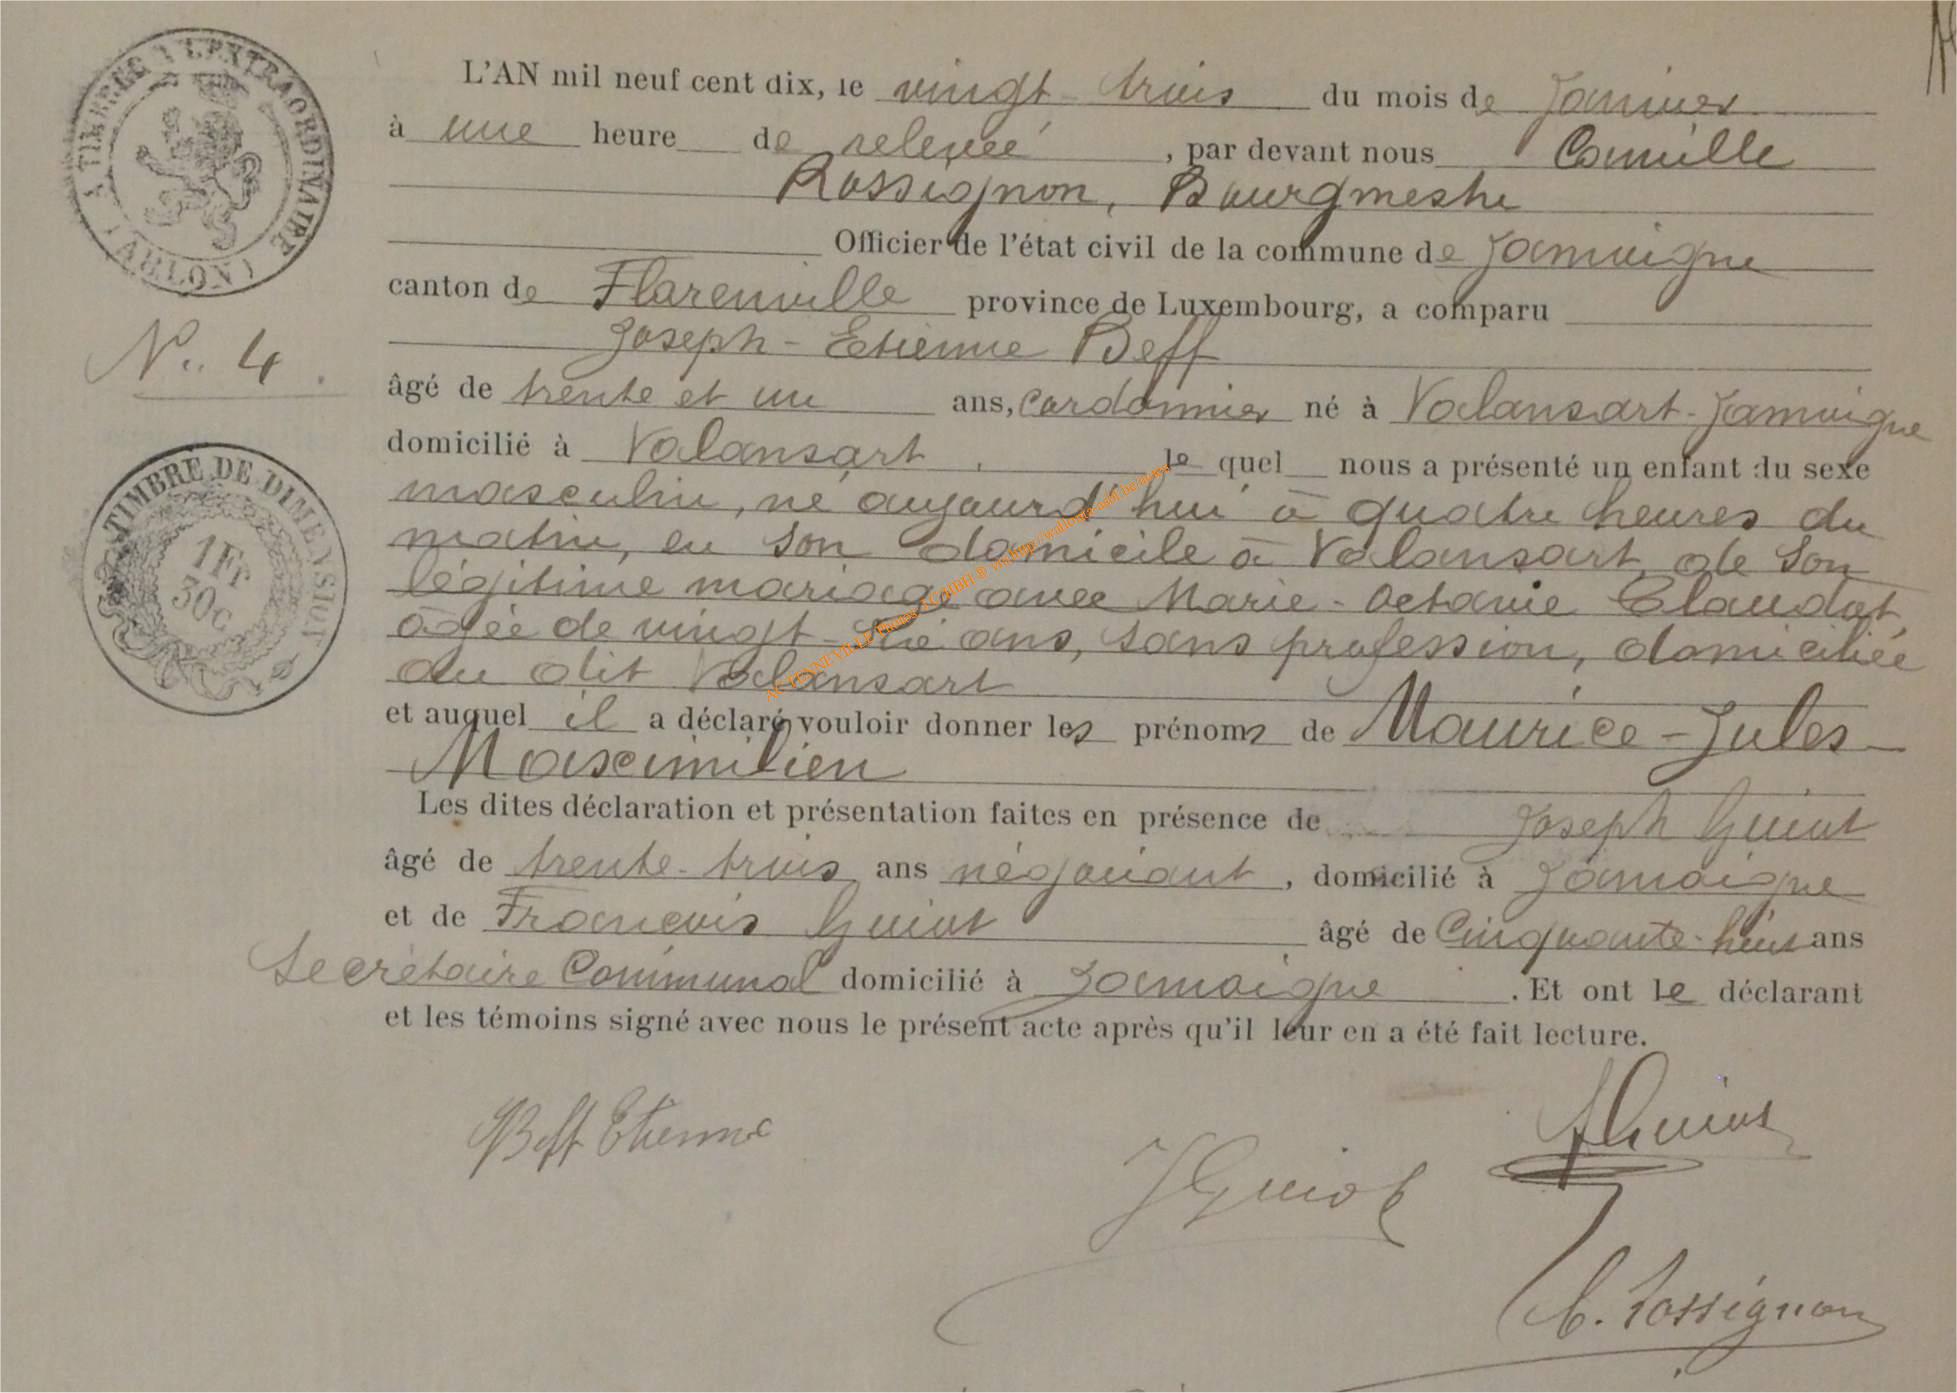 TIMBRES A L'EXTRAORDINAIRE
(ARLON)
L'AN mil neuf cent dix, le vingt-trois du mois de Janvier
à une heure de relevée, par devant nous Camille
Rossignon, Bourgmestre
Officier de l'état civil de la commune de Jamoigne
canton de Florenville province de Luxembourg, a comparu
Joseph-Etienne Beff
N° 4.
âgé de trente et un ans, Cordonnier né à Valansart-Jamoigne
domicilié à Valansart, le quel nous a présenté un enfant du sexe
masculin, né aujourd'hui à quatre heures du
matin, en son domicile à Valansart, de son
légitime mariage avec Marie-Octavie Claudot,
âgée de vingt- ans, sans profession, domiciliée
au dit Valansart
TIMBRE DE DIMENSION
1Fr
30c
et auquel il a déclaré vouloir donner les prénoms de Maurice-Jules-
Maximilien
Les dites déclaration et présentation faites en présence de Joseph Guiot
âgé de trente-trois ans négociant, domicilié à Jamoigne
et de François Guiot âgé de Cinquante-huit ans
Secrétaire Communal domicilié à Jamoigne. Et ont le déclarant
et les témoins signé avec nous le présent acte après qu'il leur en a été fait lecture.
Beff Etienne
JGuiot
Guiot
C. Rossignon